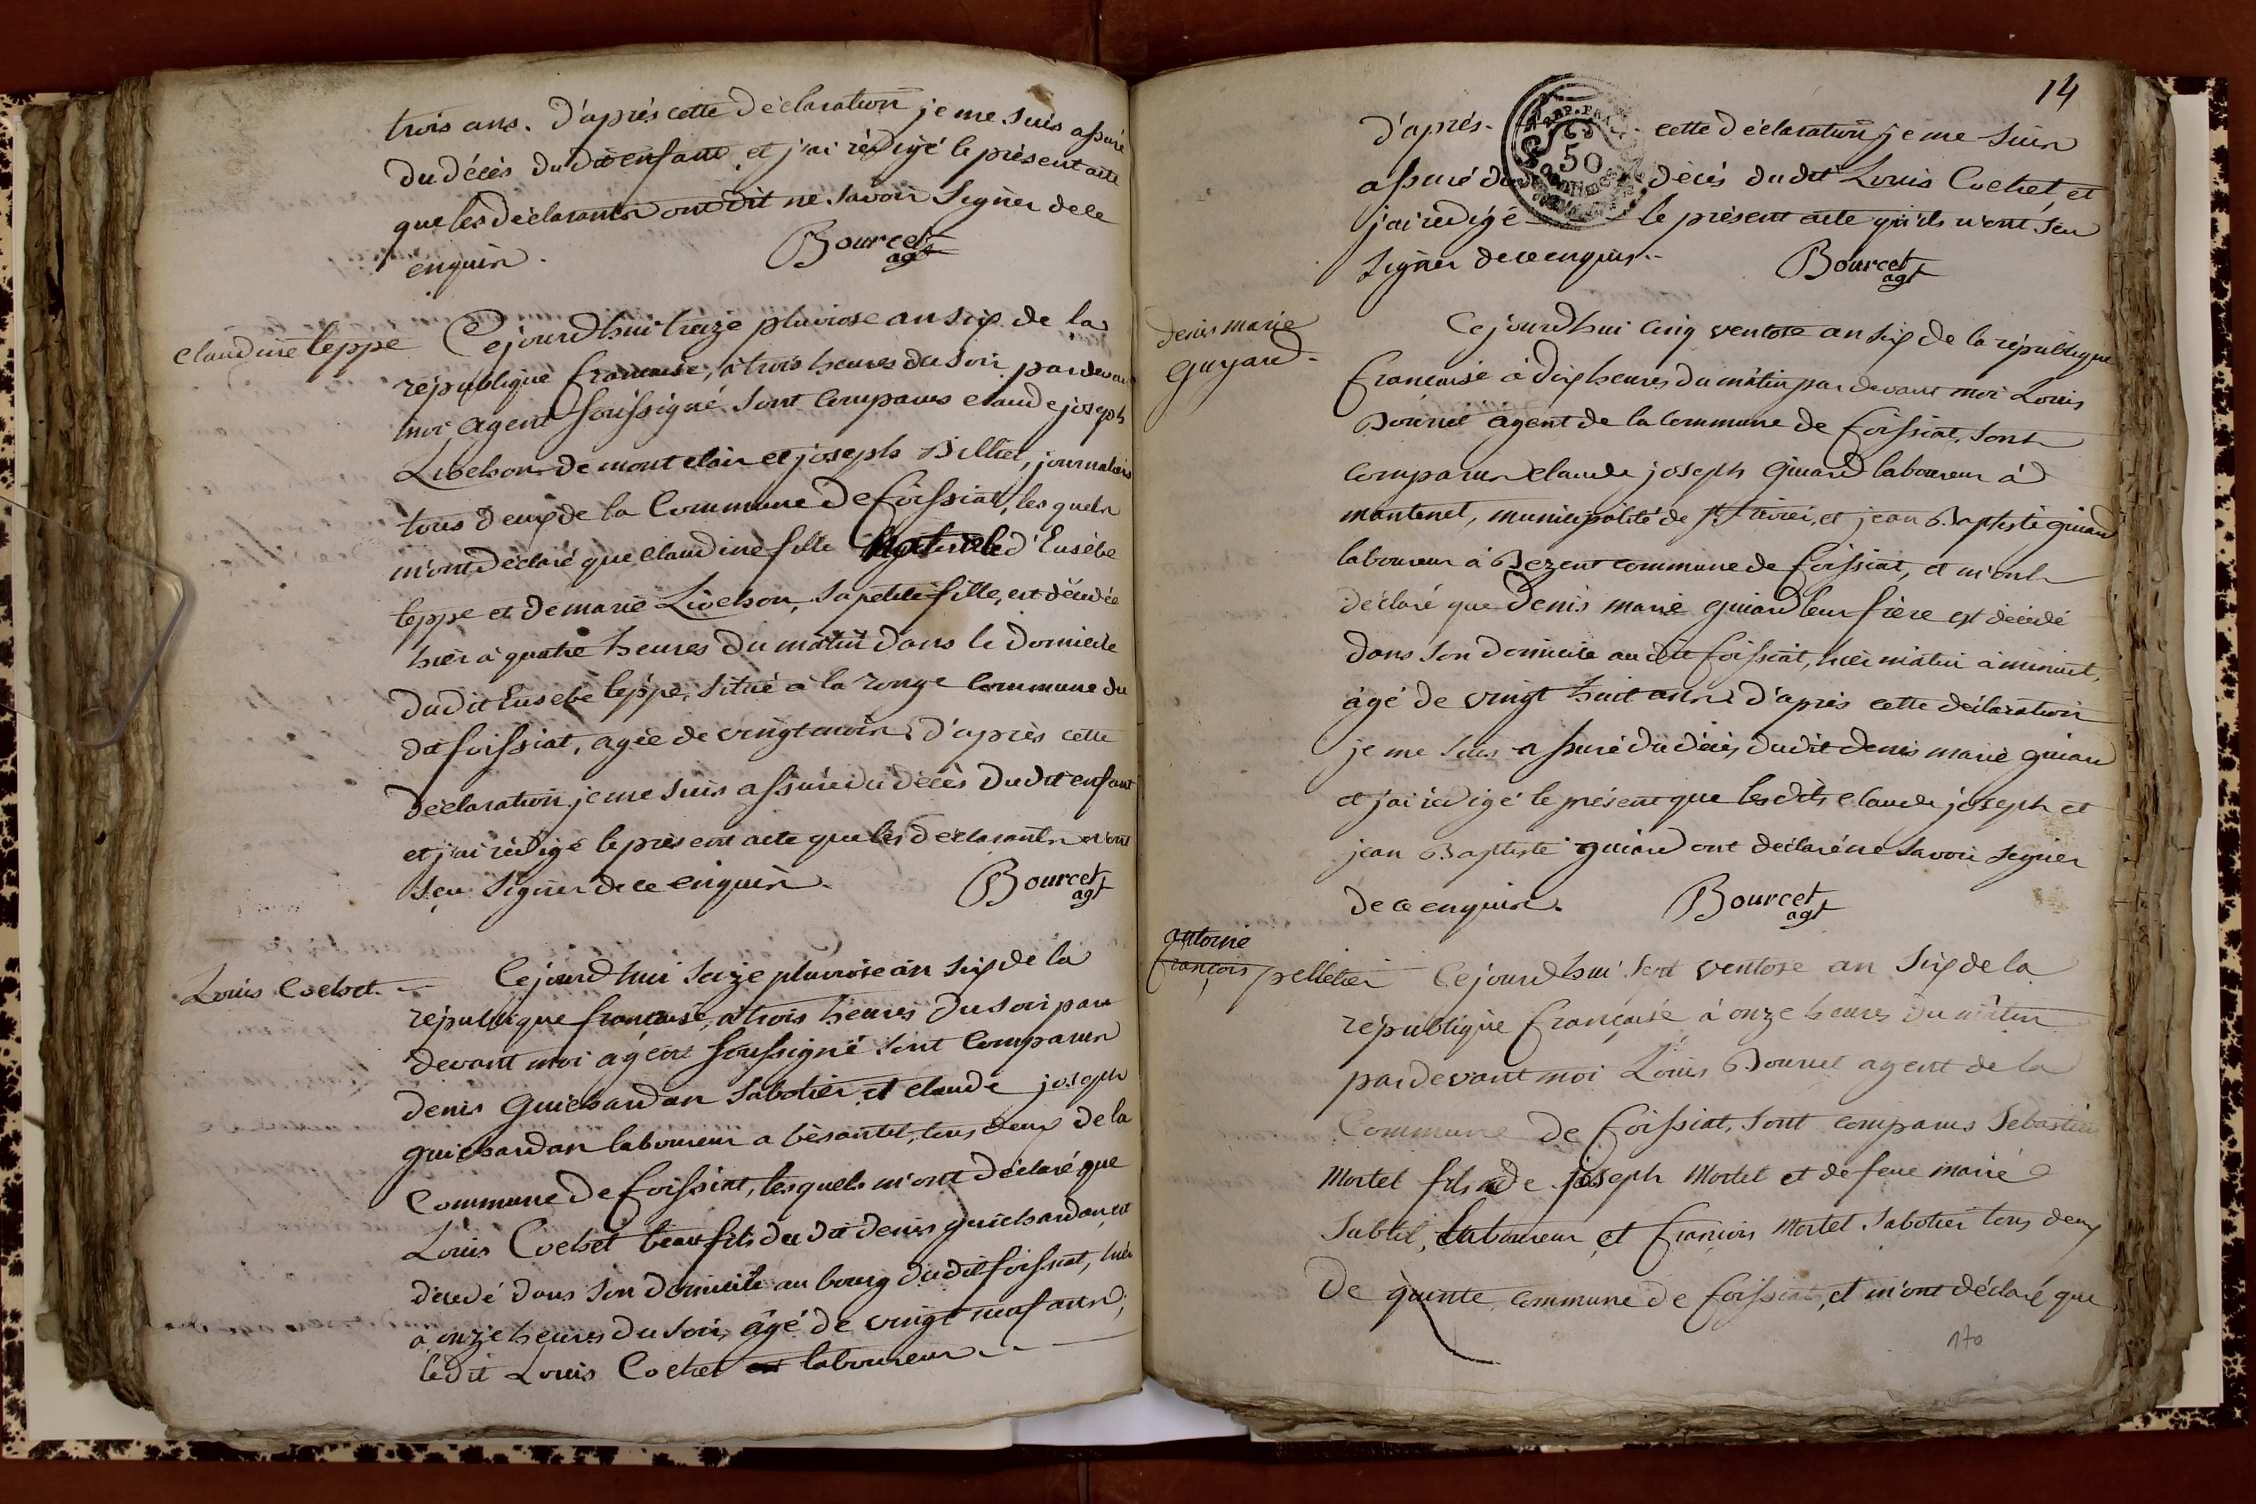 trois ans. d'après cette déclaration je me suis assuré
du décès dudit enfant et j'ai rédigé le présent acte
que les déclarants ont dit ne savoir signer de ce
enquis.
Bourcet
agt
claudine teppe
Cejourdhui treize pluviose an six de la
republique francaise, à trois heures du soir pardevant
moi agent soussigné sont comparus claude joseph
Livelson de montclair et joseph Billiet, journaliers
tous deux de la Commune de foissiat, les quels
m'ont déclaré que claudine fille d'Eusèbe
teppe et de marie Livelson, sa petite fille, est décédée
hier à quatre heures du matin dans le domicile
dudit Eusebe teppe, situé à la ronge commune du
dit foissiat, agée de vingt mois. d'après cette
déclaration je me suis assuré du décès dudit enfant
et j'ai rédigé le présent acte que les déclarants n'ont
sçu signer de ce enquis.
Bourcet
agt
Louis Cochet.
Cejourdhui seize pluviose an six de la
republique francaise, à trois heures du soir par
devant moi agent soussigné sont comparus
denis Guichardan sabotier et claude joseph
guichardan laboureur a bésantet, tous deux de la
Commune de foissiat, lesquels m'ont déclaré que
Louis Cochet beaufils du dit denis guichardan est
décédé dans son domicile au bourg dudit foissiat, hier
a onze heures du soir, âgé de vingt neuf ans,
ledit Louis Cochet laboureur
14
d'après cette déclaration je me suis
assuré du décès dudit Louis Cochet, et
j'ai redigé le présent acte qu'ils n'ont seu
signer de ce enquis.
REP. FRA.
50
centimes
Bourcet
agt
denis marie
guyard
Cejourdhui cinq ventose an six de la république
francaise à dix heures du matin par devant moi Louis
Bourcet agent de la commune de foissiat, sont
comparus claude joseph Guiard laboureur à
mantenet, municipalité de st. trivier, et jean Baptiste guiard
laboureur à Bezent commune de foissiat, et m'ont
déclaré que denis marie guiard leur frère est décédé
dans son domicile audit foissiat, hier matin à minuit,
âgé de vingt huit ans. d'après cette déclaration
je me suis assuré du décès dudit denis marie guiard
et j'ai redigé le présent que lesdits claude joseph et
jean Baptiste guiard ont déclaré ne savoir signer
de ce enquis.
Bourcet
agt
antoine
françois pelletier
Cejourdhui sept ventose an six de la
république française à onze heures du matin
pardevant moi Louis Bourcet agent de la
Commune de foissiat, sont comparus Sebastien
Mortel fils de joseph Mortel et de feue marie
Subtil, laboureur et françois Mortel sabotier tous deux
de quinte, commune de foissiat, et m'ont déclaré que
170